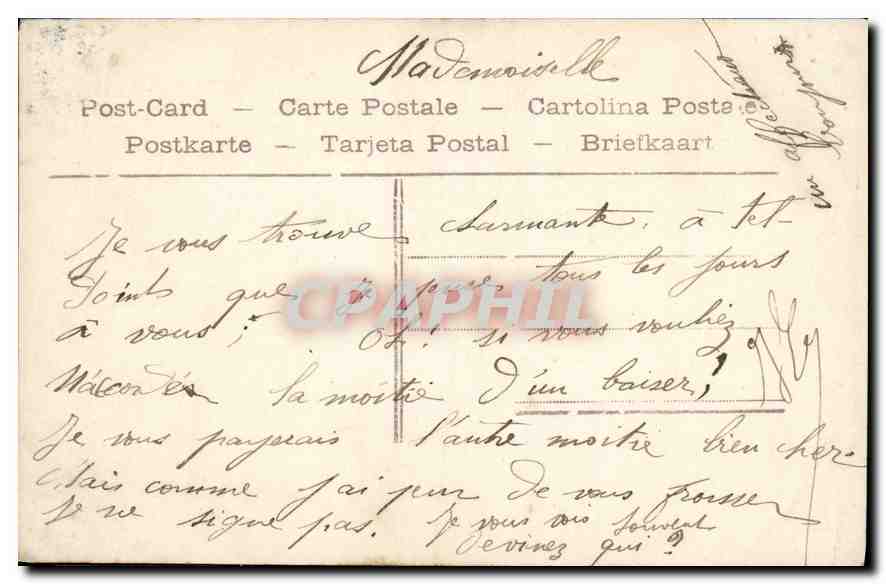 Mademoiselle
Post-Card — Carte Postale — Cartolina Postale
Postkarte — Tarjeta Postal — Briefkaart
Je vous trouve charmante, à tel-
Points que je penses tous les jours
à vous; Oh! si vous vouliez
M'accordés la moitie d'un baiser,
Je vous payerais l'autre moitie bien cher
Mais comme j'ai peur de vous froisser
Je ne signe pas. Je vous vois souvent
devinez qui?
CPAPHIL
un affectueux
bonjour